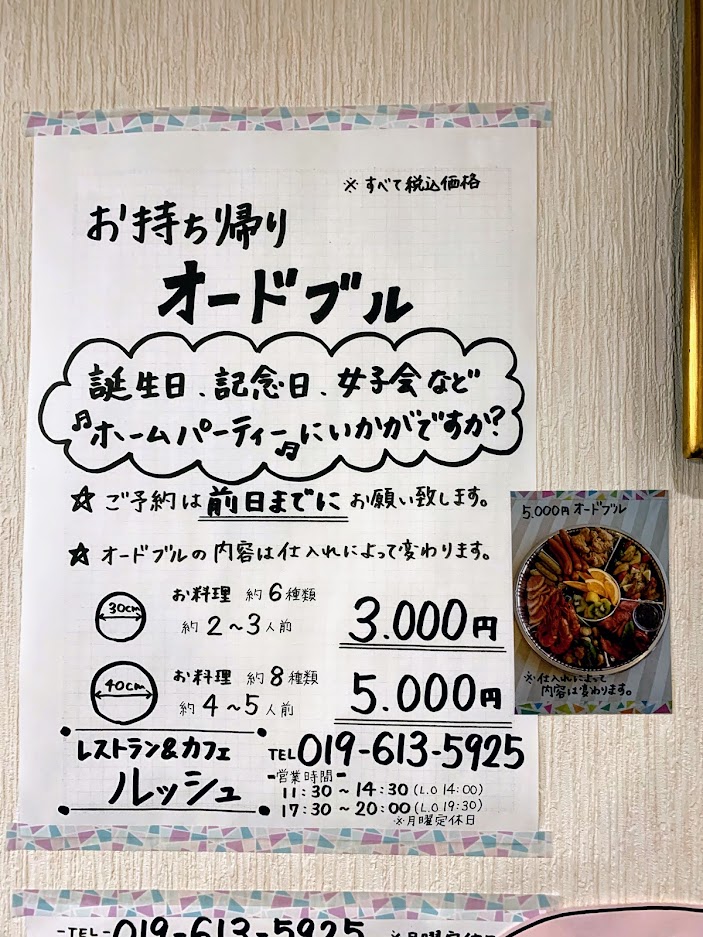 ※すべて税込価格
お持ち帰り
オードブル
誕生日、記念日、女子会など
♫ホームパーティー♫にいかがですか？
☆ご予約は前日までにお願い致します。
☆オードブルの内容は仕入れによって変わります。
30cm お料理 約6種類
約2～3人前 3.000円
40cm お料理 約8種類
約4～5人前 5.000円
レストラン&カフェ
ルッシュ
TEL 019-613-5925
営業時間
11:30～14:30(L.O 14:00)
17:30～20:00(L.O 19:30)
※月曜定休日
5.000円オードブル
※仕入れによって
内容は変わります。
-TEL- 019-613-5925 ※月曜定休日